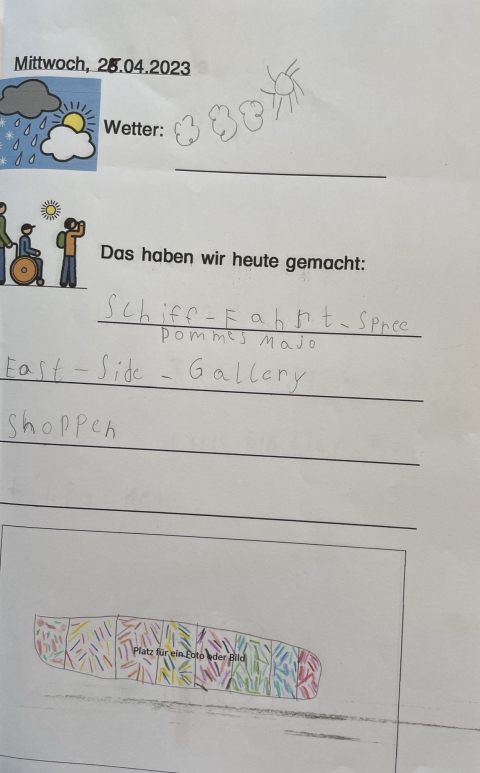 Mittwoch, 26.04.2023
Wetter:
Das haben wir heute gemacht:
Schiff-Fahrt-Spree
Pommes Majo
East-Side-Gallery
Shoppen
Platz für ein Foto oder Bild